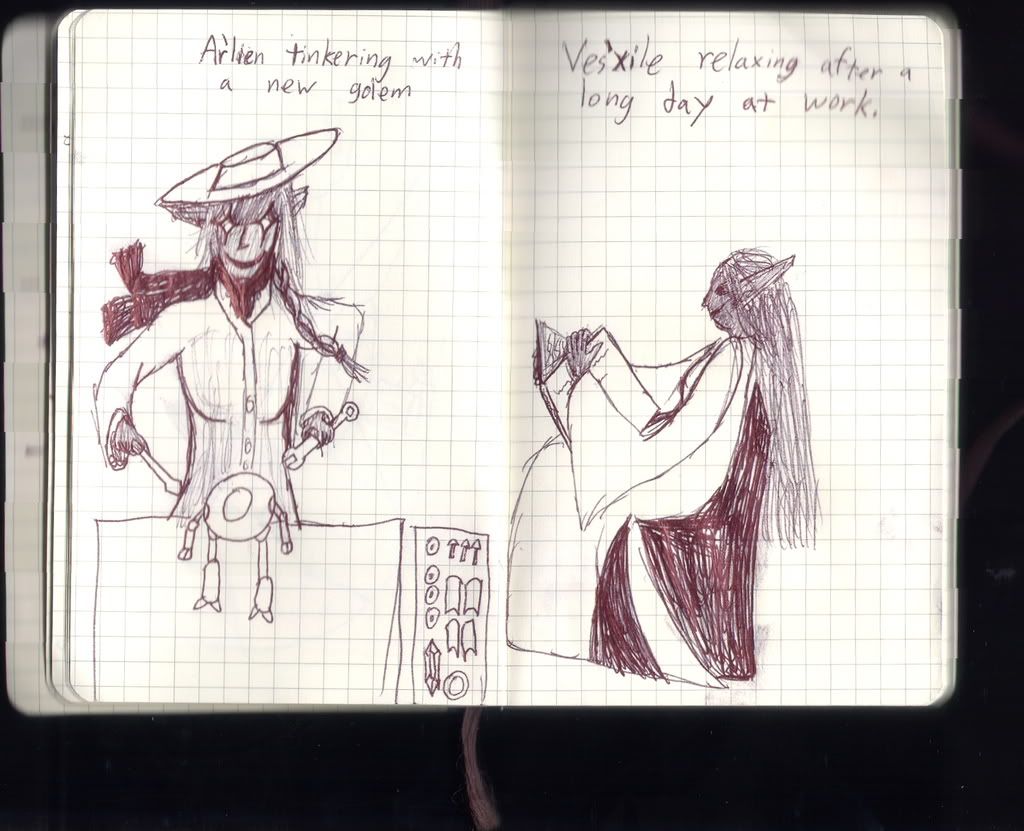 Ar'lien tinkering with
a new golem
Ves'xile relaxing after a
long day at work.